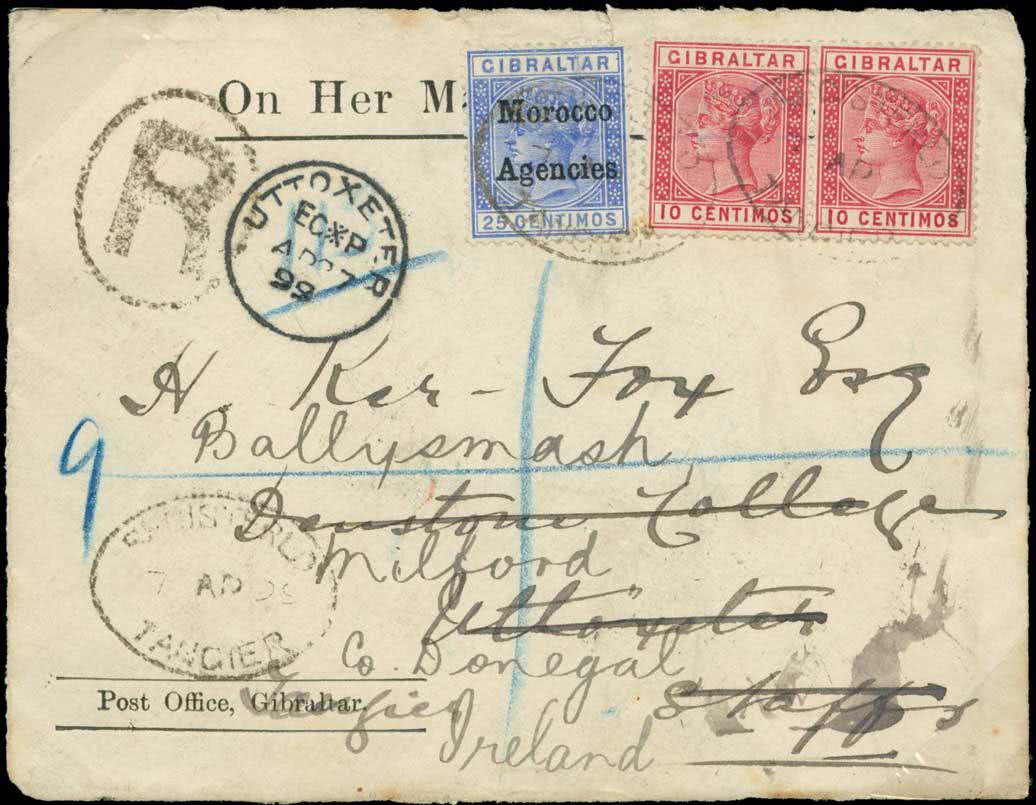 GIBRALTAR
Morocco
Agencies
25 CENTIMOS
GIBRALTAR
10 CENTIMOS
GIBRALTAR
10 CENTIMOS
On Her Ma
R
UTTOXETER
EC*P
AP 27
99
H. Ker-Fox Esq
Ballysmash
9
Denstone College
Milford
Uttoxeter
Co. Donegal
Staffs
Ireland
REGISTERED
7 AP 99
TANGIER
Post Office, Gibraltar.
Tangier